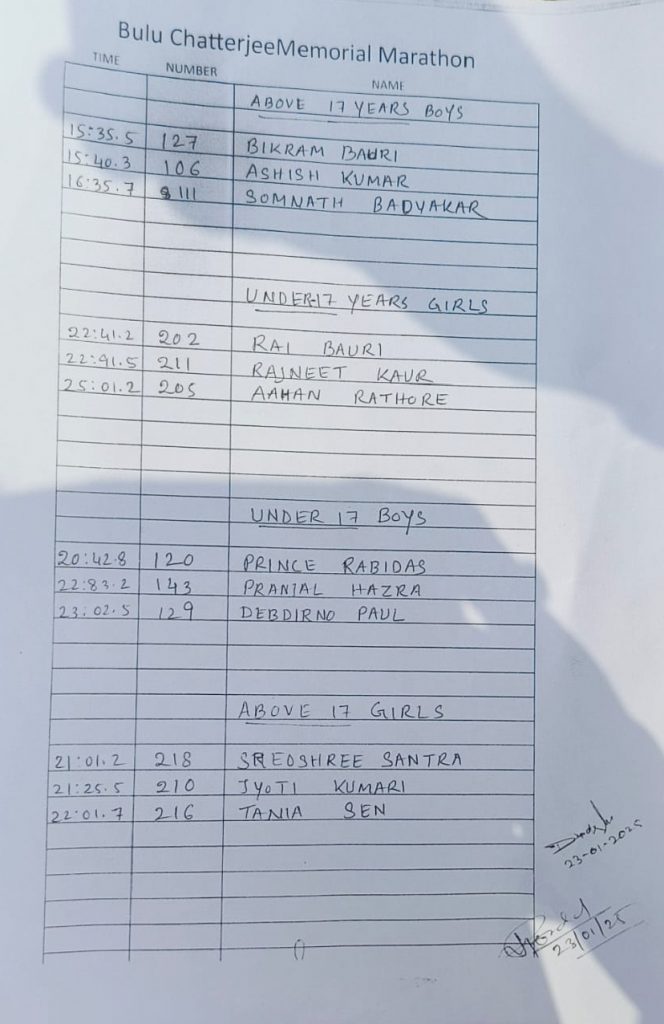 Bulu ChatterjeeMemorial Marathon
TIME NUMBER NAME
ABOVE 17 YEARS BOYS
15:35.5 127 BIKRAM BAURI
15:40.3 106 ASHISH KUMAR
16:35.7 111 SOMNATH BADYAKAR
UNDER-17 YEARS GIRLS
22:41.2 202 RAI BAURI
22:91.5 211 RAJNEET KAUR
25:01.2 205 AAHAN RATHORE
UNDER 17 BOYS
20:42.8 120 PRINCE RABIDAS
22:83.2 143 PRANJAL HAZRA
23:02.5 129 DEBDIRNO PAUL
ABOVE 17 GIRLS
21:01.2 218 SREOSHREE SANTRA
21:25.5 210 JYOTI KUMARI
22:01.7 216 TANIA SEN
23-01-2025
23/01/25